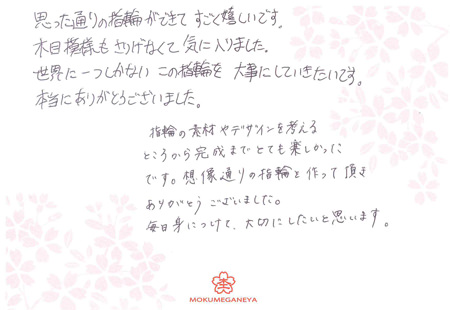 思った通りの指輪ができて すごく嬉しいです。
木目模様も さりげなくて 気に入りました。
世界に一つしかない この指輪を 大事にしていきたいです。
本当にありがとうございました。
指輪の素材やデザインを考える
ところから完成までとても楽しかった
です。想像通りの指輪を作って頂き
ありがとう ございました。
毎日身につけて、大切にしたいと思います。
MOKUMEGANEYA